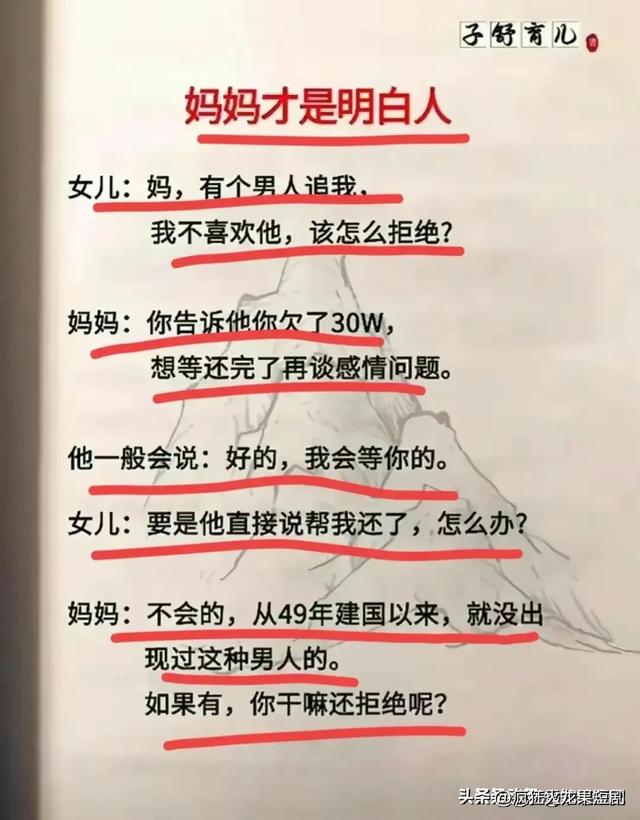 子舒育儿
妈妈才是明白人
女儿：妈，有个男人追我，
我不喜欢他，该怎么拒绝？
妈妈：你告诉他你欠了30W，
想等还完了再谈感情问题。
他一般会说：好的，我会等你的。
女儿：要是他直接说帮我还了，怎么办？
妈妈：不会的，从49年建国以来，就没出
现过这种男人的。
如果有，你干嘛还拒绝呢？
@疯狂火龙果短剧